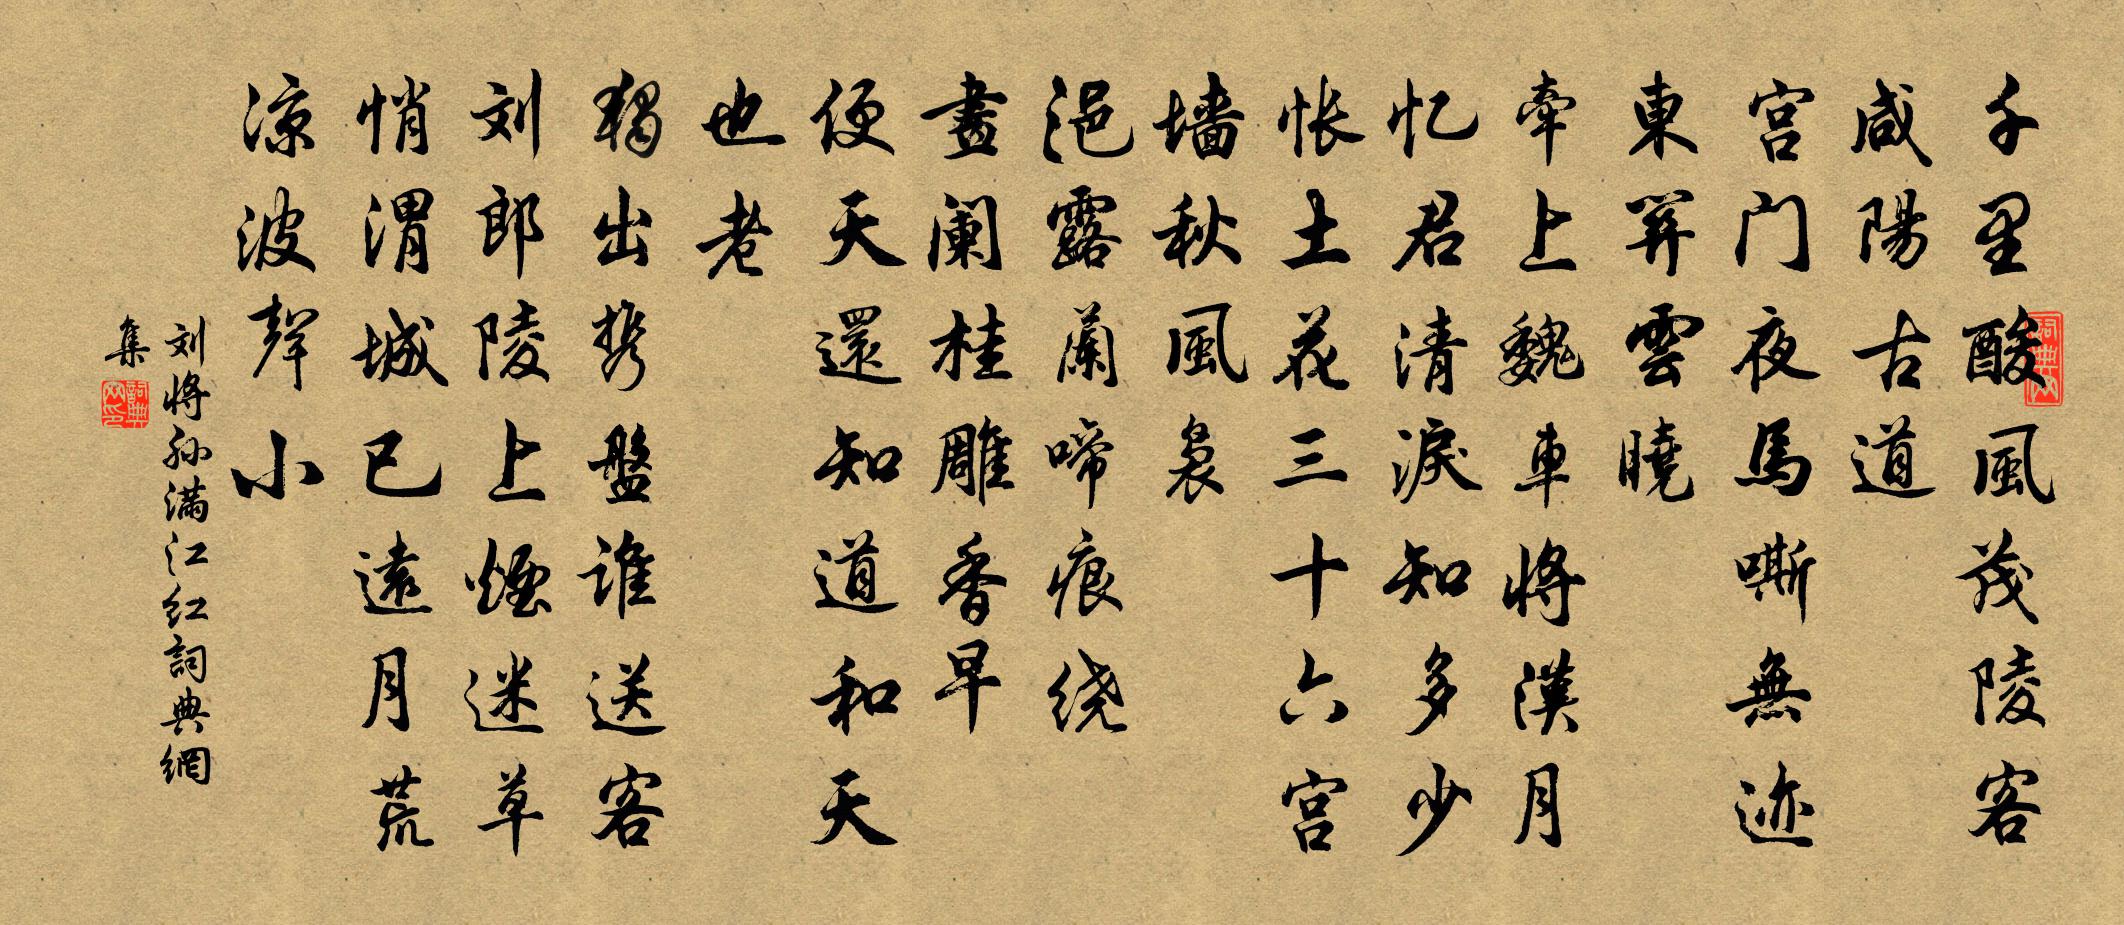 千里酸風茂陵客
咸陽古道
宫门夜馬嘶無迹
東井雲曉
牵上魏車將漢月
忆君清淚知多少
怅土花三十六宫
墙秋風袅
浥露蘭啼痕绕
畫阑桂雕香早
便天還知道和天
也老
獨出携盤谁送客
刘郎陵上煙迷草
悄渭城已遠月荒
凉波聲小
刘將孙满江红詞典網
集
詞典网
詞典网印